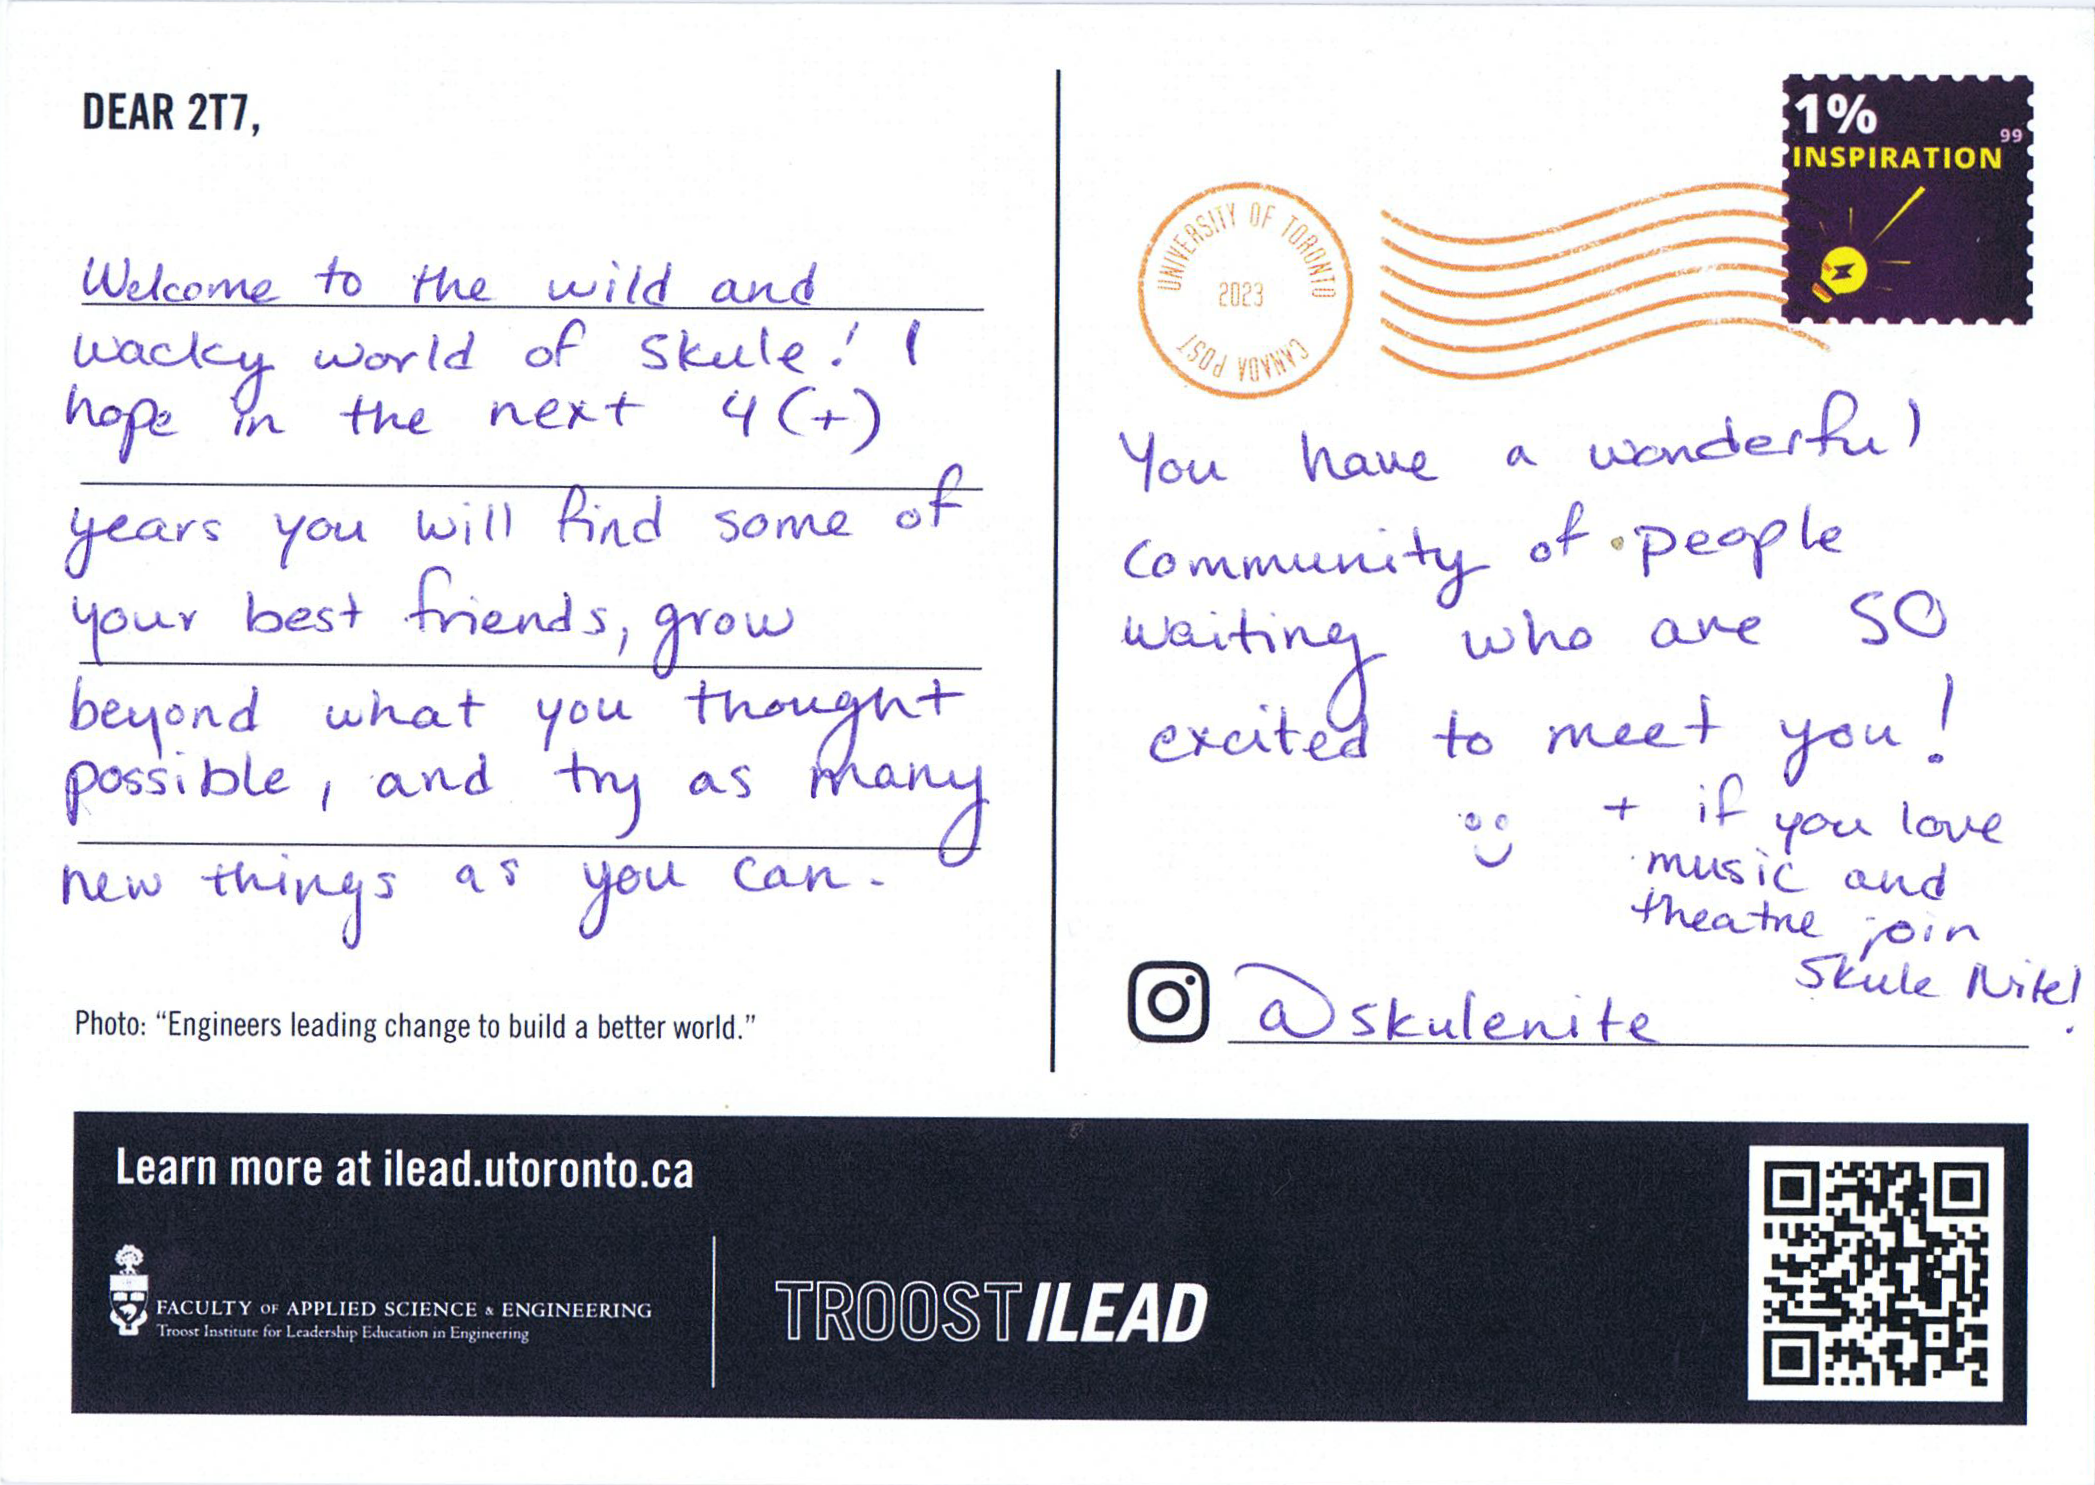 DEAR 2T7,
Welcome to the wild and
wacky world of Skule! I
hope in the next 4(+)
years you will find some of
your best friends, grow
beyond what you thought
possible, and try as many
new things as you can.
Photo: “Engineers leading change to build a better world.”
1%
99
INSPIRATION
UNIVERSITY OF TORONTO
2023
CANADA POST
You have a wonderful
community of people
waiting who are SO
excited to meet you!
+ if you love
music and
theatre join
Skule Nite!
@skulenite
Learn more at ilead.utoronto.ca
FACULTY OF APPLIED SCIENCE & ENGINEERING
Troost Institute for Leadership Education in Engineering
TROOST ILEAD